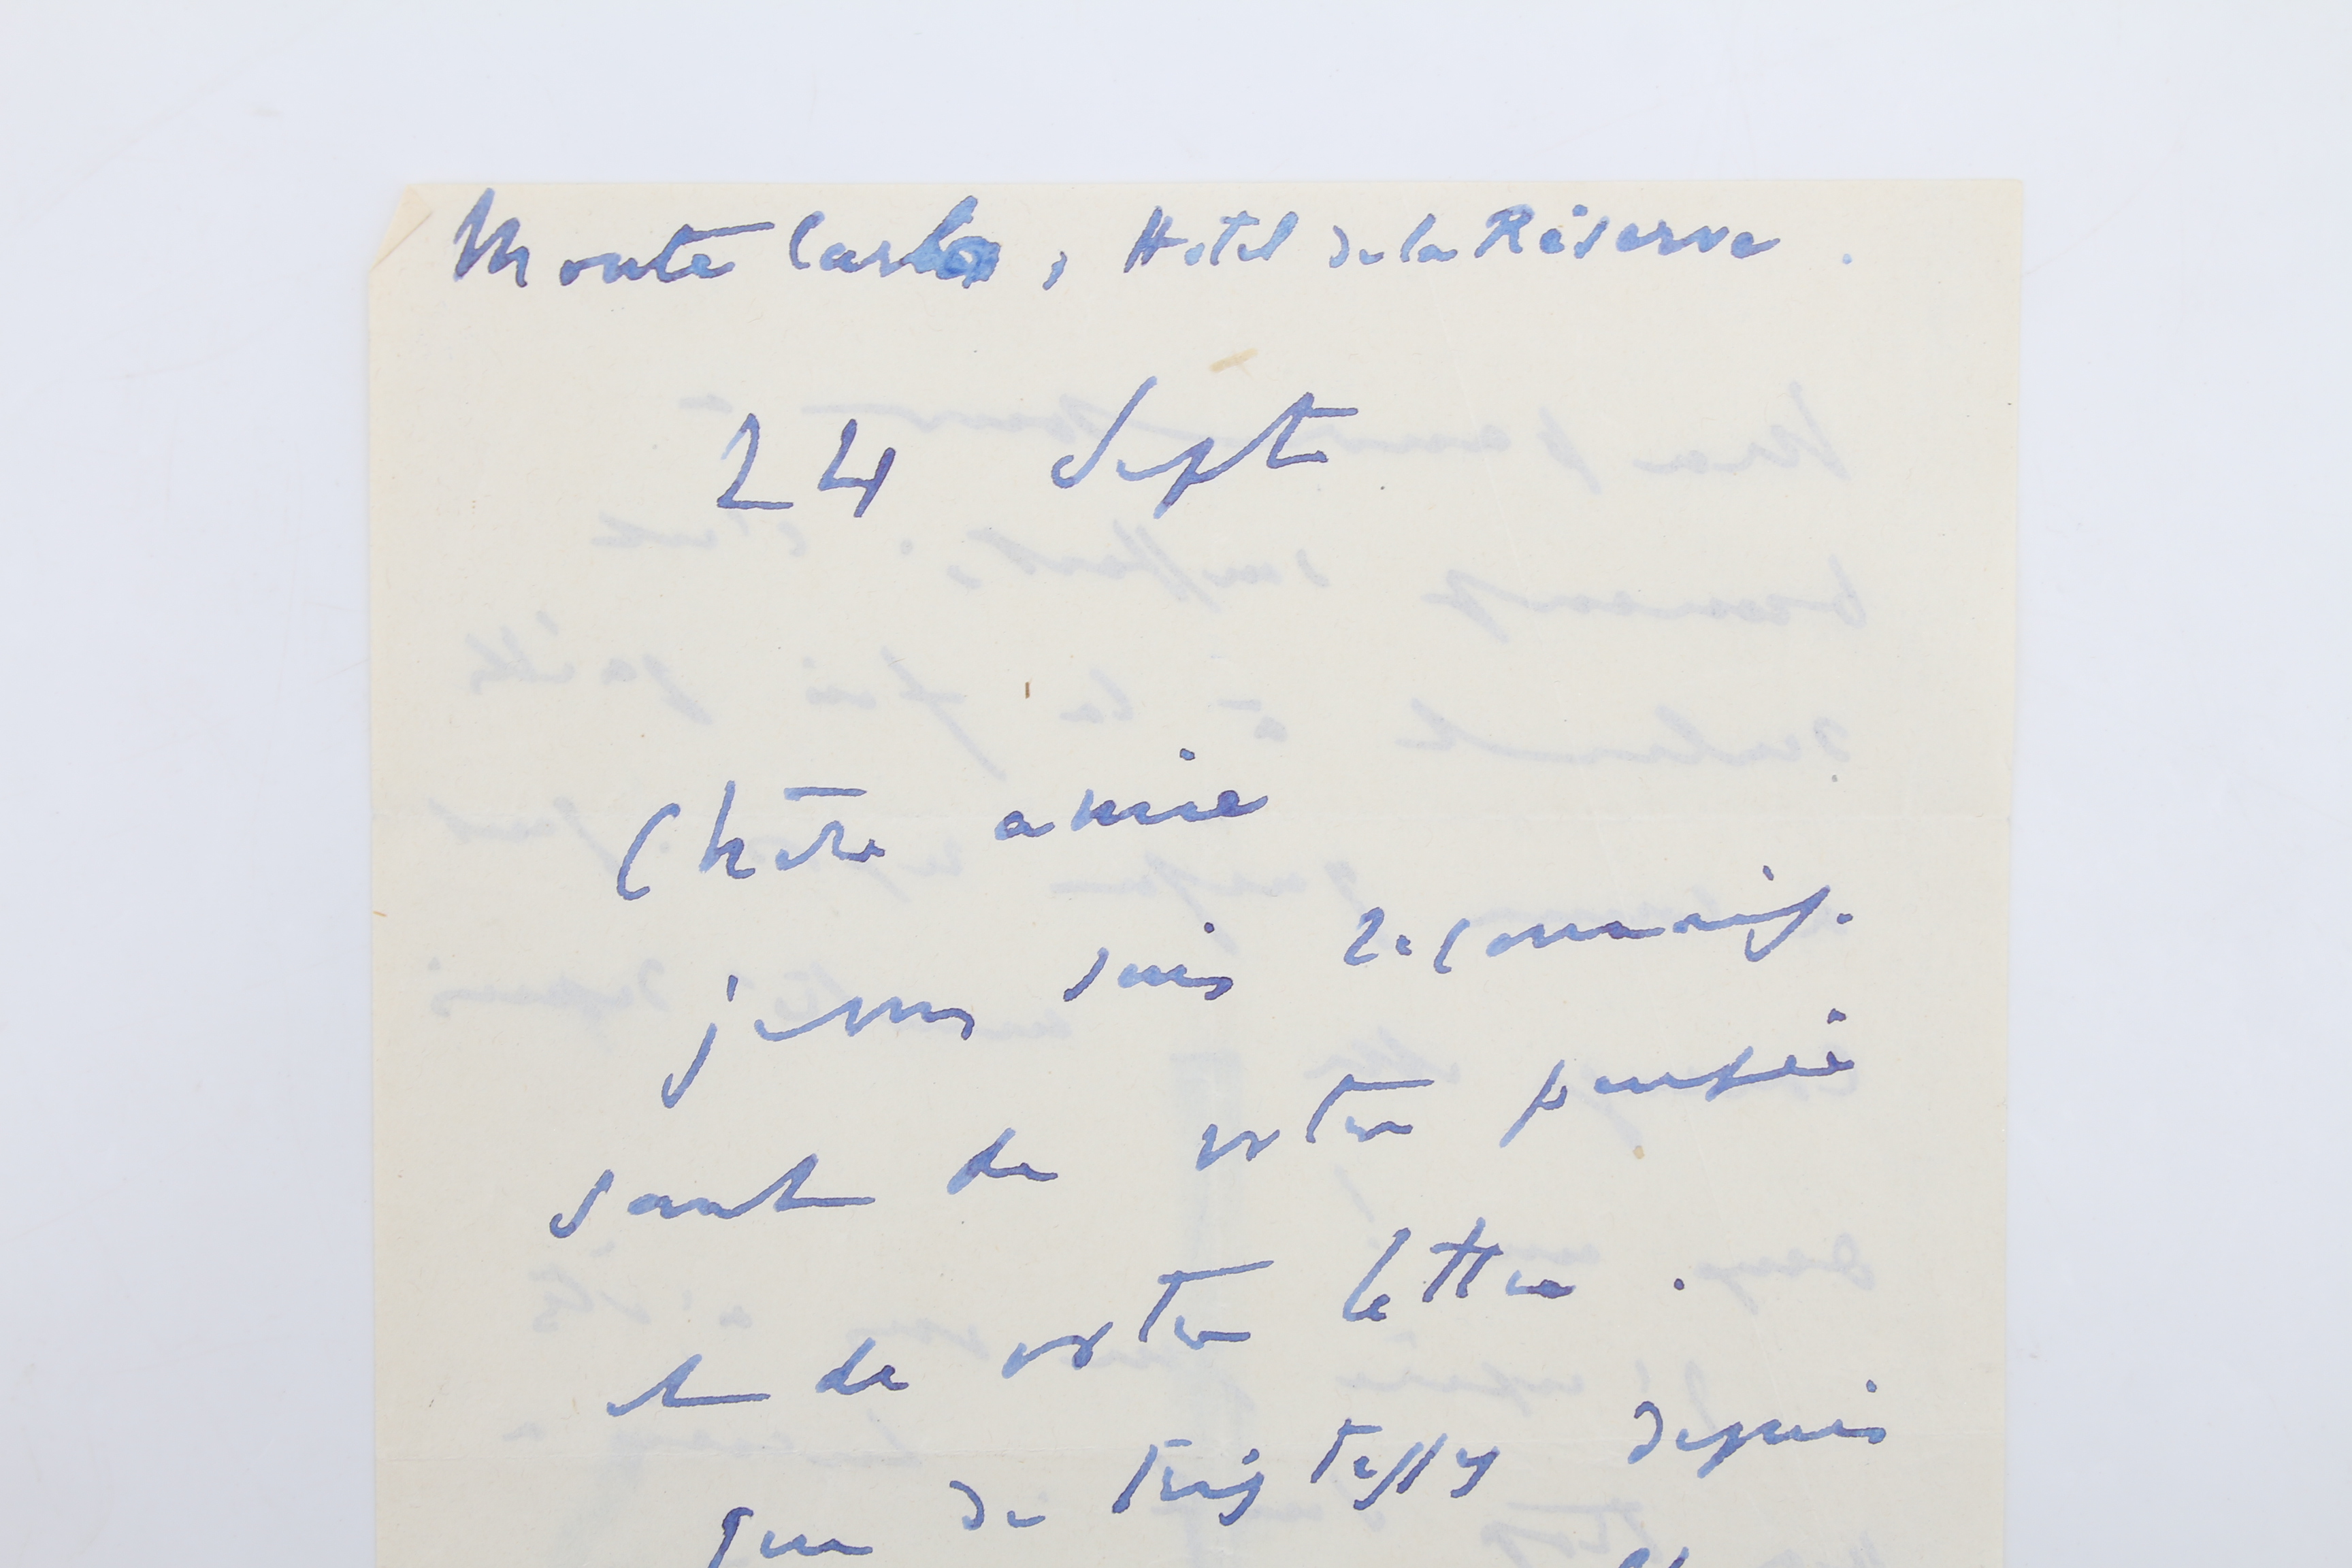 Monte Carlo, Hotel de la Réserve.
24 Sept
Chère amie
je vous suis reconnais-
sant de votre pensée
et de votre lettre.
que de tristesses depuis